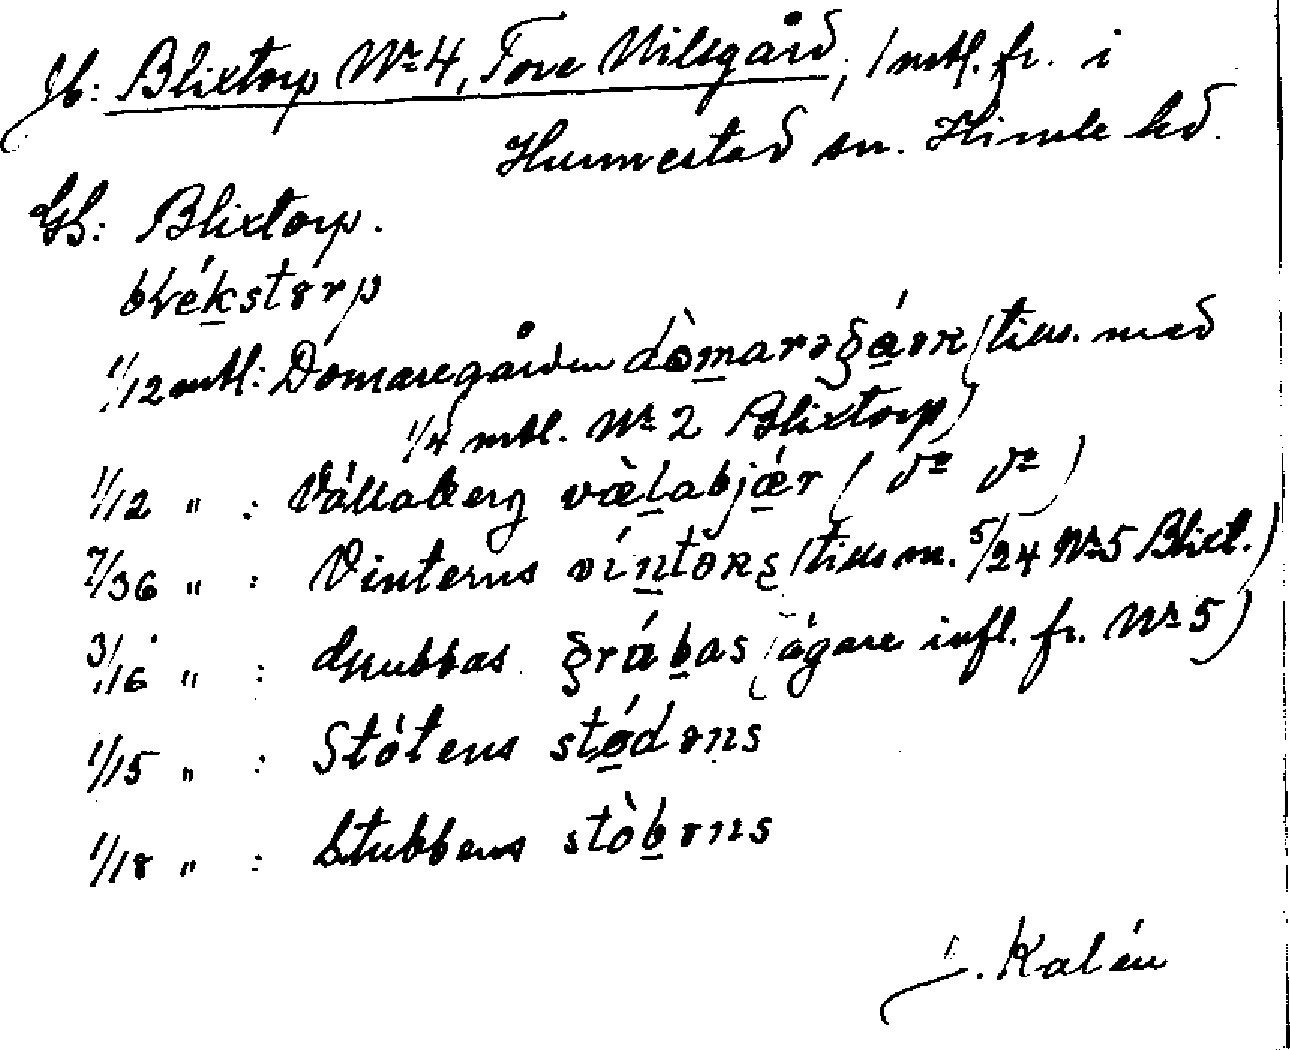 Jb: Blixtorp No 4, Tore Nilsgård; 1 mtl. fr. i
Hunnestad sn. Himle hd.
Gb: Blixtorp.
blékstorp
1/12 mtl: Domaregården dòmaragáɴ (tills. med
1/4 mtl. No 2 Blixtorp)
1/12 " : Vällaberg vælabjær ( do do )
7/36 " : Vinterns víntərs (tills m. 5/24 No 5 Blixt.)
3/16 " : Grubbas grúbas (ägare infl. fr. No 5)
1/15 " : Stötens stødəns
1/18 " : Stubbens stòbəns
J. Kalén